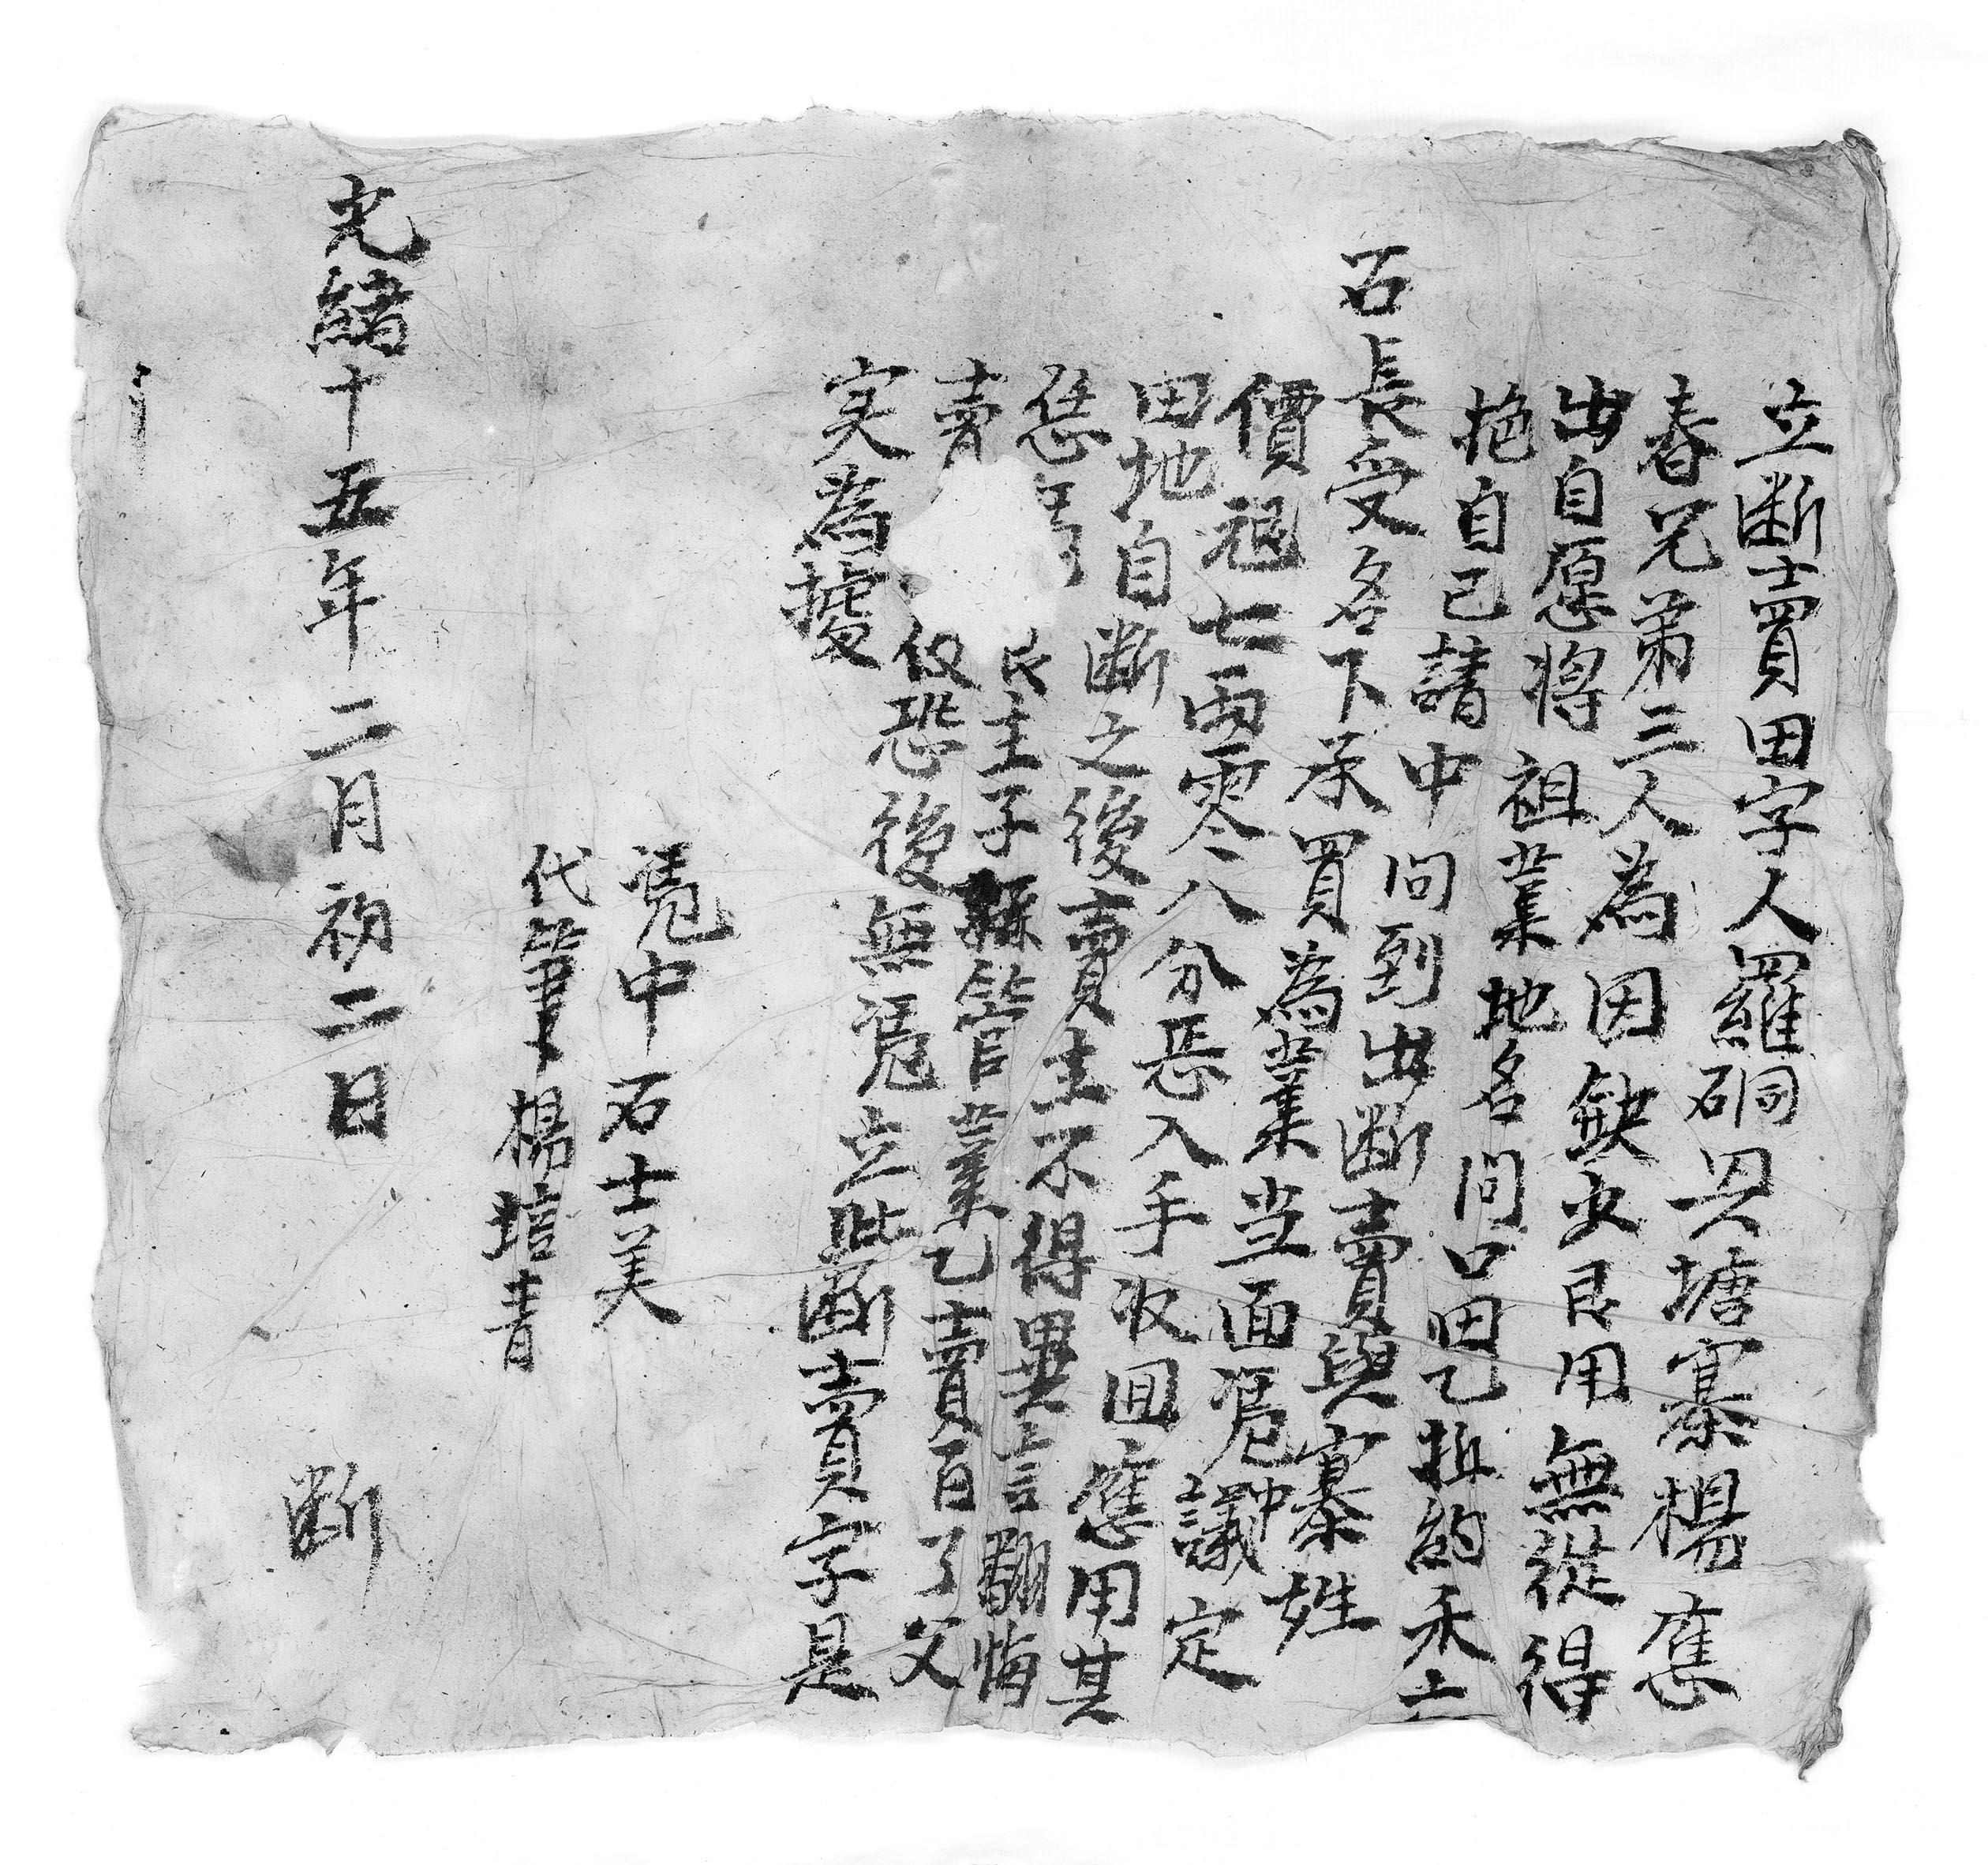 立断賣田字人羅硐貝塘寨楊應
春兄弟三人為因缺少艮用無從得
出自愿將祖業地名问口田乙坵約禾二
挽自己請中问到出断賣與寨姓
石長受名下承買為業当面凴中議定
價艮七両零八分恁入手收回應用其
田地自断之後賣主不得異言翻悔
恁 民主子孫管業乙賣百了父
賣 仅恐後無凴立此断賣字是
実為據
凴中石士美
代筆楊培青
光緒十五年二月初二日 断